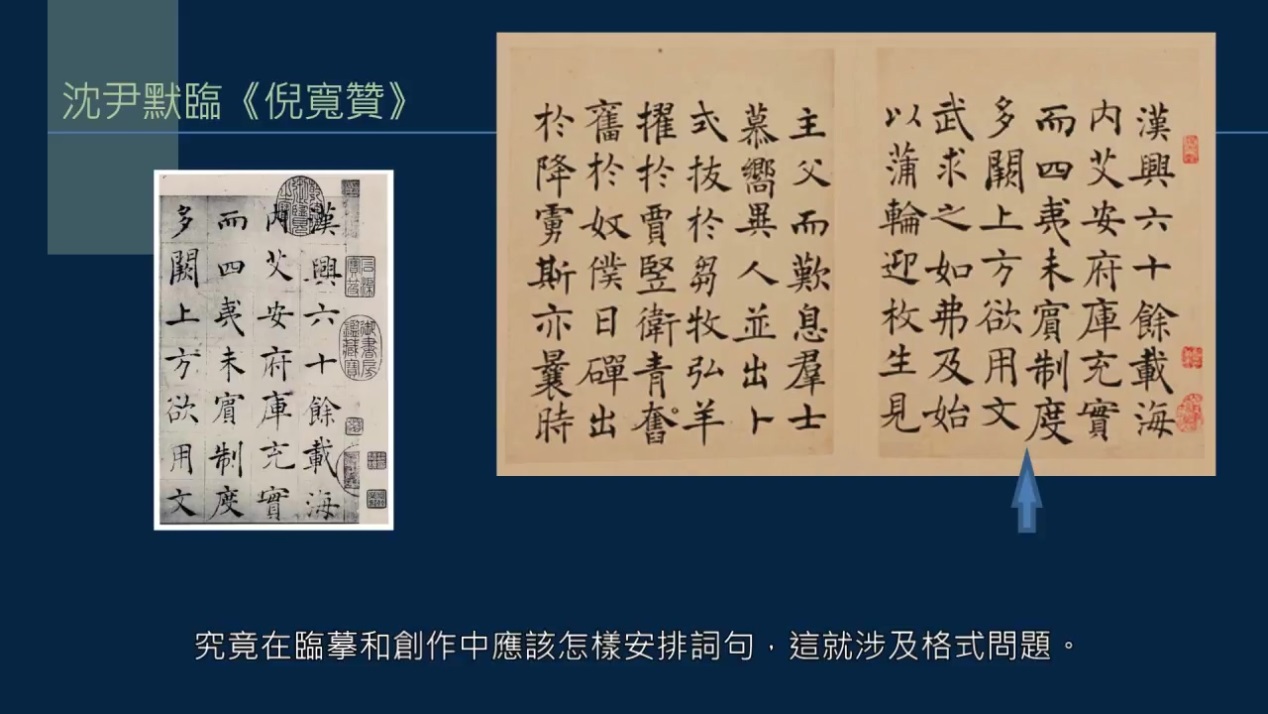 沈尹默臨《倪寬贊》
漢興六十餘載海
内艾安府庫充實
而四夷未賓制度
多闕上方欲用文
漢興六十餘載海
内艾安府庫充實
而四夷未賓制度
多闕上方欲用文
武求之如弗及始
以蒲輪迎枚生見
主父而歎息羣士
慕嚮異人並出卜
式拔於芻牧弘羊
擢於賈豎衛青奮
舊於奴僕日磾出
於降虜斯亦曩時
究竟在臨摹和創作中應該怎樣安排詞句，這就涉及格式問題。